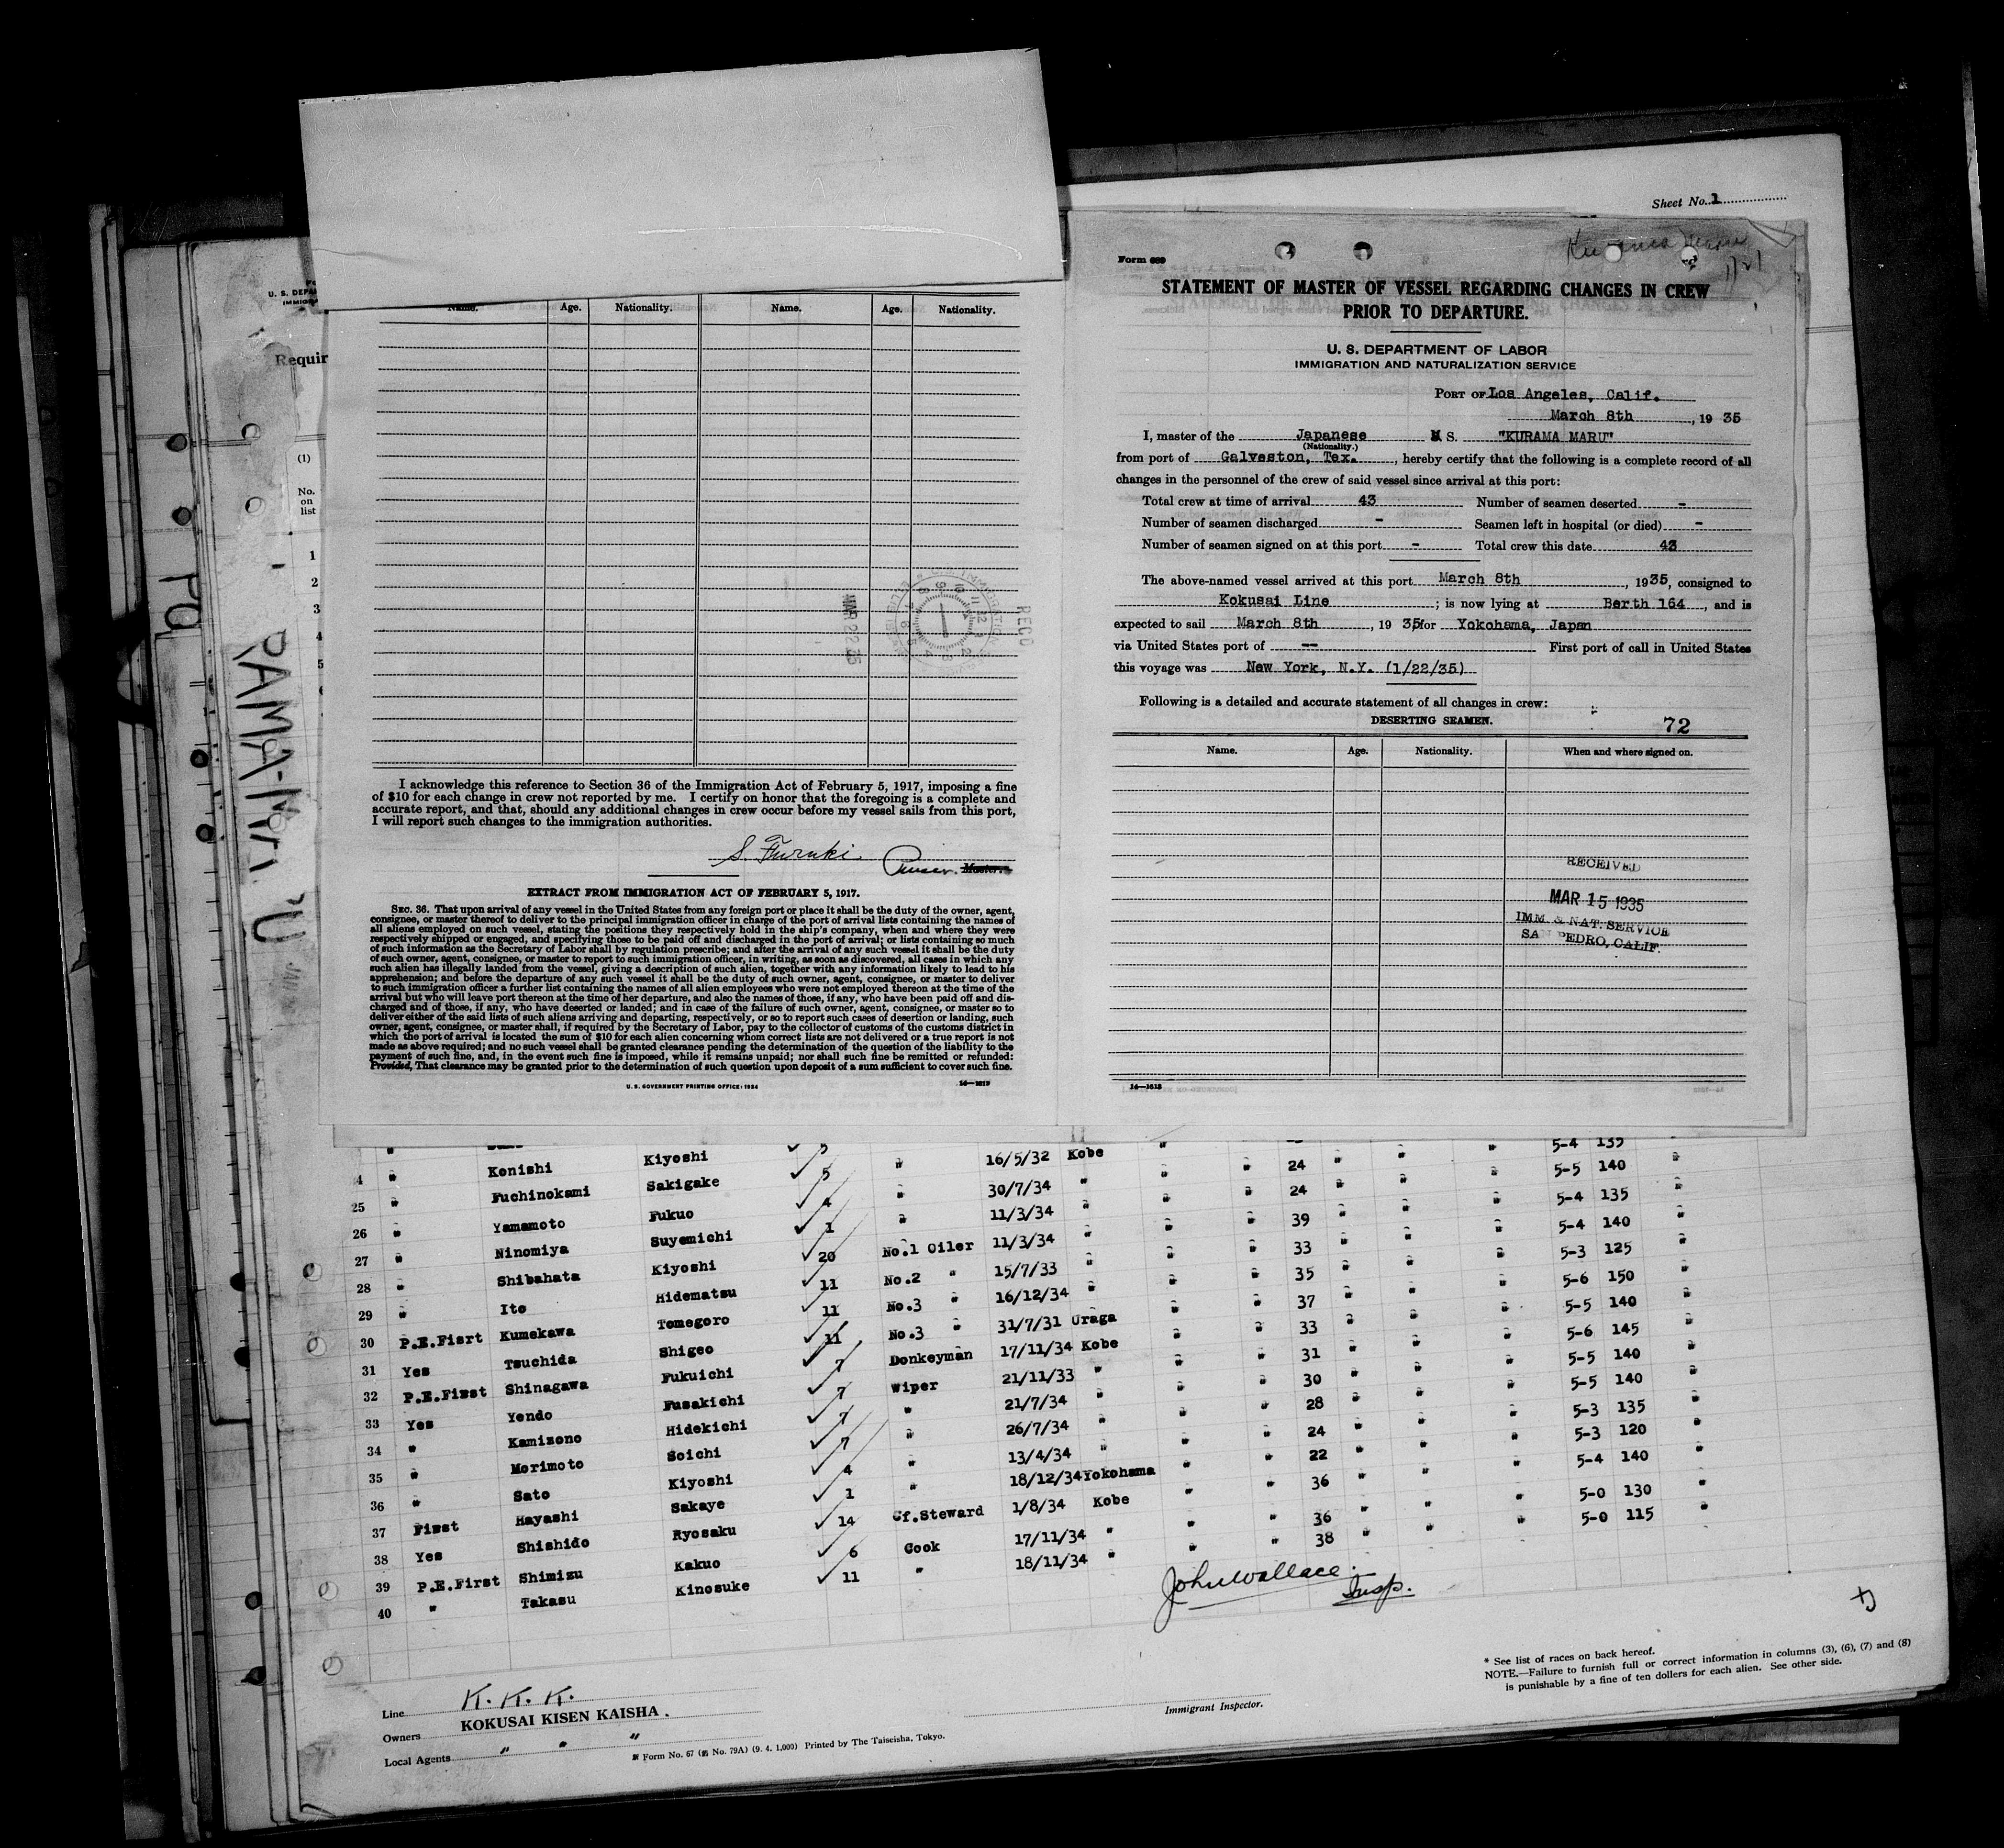 Sheet No. 1
U. S. DEPA
Requir
(1)
No.
on
list
1
2
3
4
5
RAMA-MARU
Name. Age. Nationality. Name. Age. Nationality.
MAR 22 35
RECD
I acknowledge this reference to Section 36 of the Immigration Act of February 5, 1917, imposing a fine
of $10 for each change in crew not reported by me. I certify on honor that the foregoing is a complete and
accurate report, and that, should any additional changes in crew occur before my vessel sails from this port,
I will report such changes to the immigration authorities.
S. Furuki.
Purser. Master.
EXTRACT FROM IMMIGRATION ACT OF FEBRUARY 5, 1917.
SEC. 36. That upon arrival of any vessel in the United States from any foreign port or place it shall be the duty of the owner, agent,
consignee, or master thereof to deliver to the principal immigration officer in charge of the port of arrival lists containing the names of
all aliens employed on such vessel, stating the positions they respectively hold in the ship's company, when and where they were
respectively shipped or engaged, and specifying those to be paid off and discharged in the port of arrival; or lists containing so much
of such information as the Secretary of Labor shall by regulation prescribe; and after the arrival of any such vessel it shall be the duty
of such owner, agent, consignee, or master to report to such immigration officer, in writing, as soon as discovered, all cases in which any
such alien has illegally landed from the vessel, giving a description of such alien, together with any information likely to lead to his
apprehension; and before the departure of any such vessel it shall be the duty of such owner, agent, consignee, or master to deliver
to such immigration officer a further list containing the names of all alien employees who were not employed thereon at the time of the
arrival but who will leave port thereon at the time of her departure, and also the names of those, if any, who have been paid off and dis-
charged and of those, if any, who have deserted or landed; and in case of the failure of such owner, agent, consignee, or master so to
deliver either of the said lists of such aliens arriving and departing, respectively, or so to report such cases of desertion or landing, such
owner, agent, consignee, or master shall, if required by the Secretary of Labor, pay to the collector of customs of the customs district in
which the port of arrival is located the sum of $10 for each alien concerning whom correct lists are not delivered or a true report is not
made as above required; and no such vessel shall be granted clearance pending the determination of the question of the liability to the
payment of such fine, and, in the event such fine is imposed, while it remains unpaid; nor shall such fine be remitted or refunded:
Provided, That clearance may be granted prior to the determination of such question upon deposit of a sum sufficient to cover such fine.
U. S. GOVERNMENT PRINTING OFFICE: 1934 14—1618
Kurama Maru
Form 689
STATEMENT OF MASTER OF VESSEL REGARDING CHANGES IN CREW
PRIOR TO DEPARTURE.
U. S. DEPARTMENT OF LABOR
IMMIGRATION AND NATURALIZATION SERVICE
PORT OF Los Angeles, Calif.
March 8th, 1935
I, master of the Japanese M S. "KURAMA MARU"
(Nationality.)
from port of Galveston, Tex., hereby certify that the following is a complete record of all
changes in the personnel of the crew of said vessel since arrival at this port:
Total crew at time of arrival 43 Number of seamen deserted -
Number of seamen discharged - Seamen left in hospital (or died) -
Number of seamen signed on at this port - Total crew this date 43
The above-named vessel arrived at this port March 8th, 1935, consigned to
Kokusai Line; is now lying at Berth 164, and is
expected to sail March 8th, 1935, for Yokohama, Japan
via United States port of -- First port of call in United States
this voyage was New York, N.Y. (1/22/35)
Following is a detailed and accurate statement of all changes in crew:
DESERTING SEAMEN. 72
Name. Age. Nationality. When and where signed on.
RECEIVED
MAR 15 1935
IMM. & NAT. SERVICE
SAN PEDRO, CALIF.
14—1618
" 5 5-4 135
4 " Konishi Kiyoshi ✓ 5 " 16/5/32 Kobe " " 24 " " " 5-5 140 "
25 " Fuchinokami Sakigake ✓ 4 " 30/7/34 " " " 24 " " " 5-4 135 "
26 " Yamamoto Fukuo ✓ 1 " 11/3/34 " " " 39 " " " 5-4 140 "
27 " Ninomiya Suyemichi ✓ 20 No.1 Oiler 11/3/34 " " " 33 " " " 5-3 125 "
28 " Shibahata Kiyoshi ✓ 11 No.2 " 15/7/33 " " " 35 " " " 5-6 150 "
29 " Ito Hidematsu ✓ 11 No.3 " 16/12/34 " " " 37 " " " 5-5 140 "
30 P.E.Fisrt Kumekawa Tomegoro ✓ 11 No.3 " 31/7/31 Uraga " " 33 " " " 5-6 145 "
31 Yes Tsuchida Shigeo ✓ 7 Donkeyman 17/11/34 Kobe " " 31 " " " 5-5 140 "
32 P.E.First Shinagawa Fukuichi ✓ 7 Wiper 21/11/33 " " " 30 " " " 5-5 140 "
33 Yes Yendo Fusakichi ✓ 7 " 21/7/34 " " " 28 " " " 5-3 135 "
34 " Kamizono Hidekichi ✓ 7 " 26/7/34 " " " 24 " " " 5-3 120 "
35 " Morimoto Soichi ✓ 4 " 13/4/34 " " " 22 " " " 5-4 140 "
36 " Sato Kiyoshi ✓ 1 " 18/12/34 Yokohama " " 36 " " " 5-0 130 "
37 First Hayashi Sakaye ✓ 14 Cf.Steward 1/8/34 Kobe " " 36 " " " 5-0 115 "
38 Yes Shishido Ryosaku ✓ 6 Cook 17/11/34 " " " 38 " "
39 P.E.First Shimizu Kakuo ✓ 11 " 18/11/34 "
40 " Takasu Kinosuke
John Wallace
Insp.
* See list of races on back hereof.
NOTE.—Failure to furnish full or correct information in columns (3), (6), (7) and (8)
is punishable by a fine of ten dollars for each alien. See other side.
Line K. K. K.
Owners KOKUSAI KISEN KAISHA.
Local Agents " " "
Immigrant Inspector.
Form No. 67 (No. 79A) (9. 4. 1,000) Printed by The Taiseisha, Tokyo.